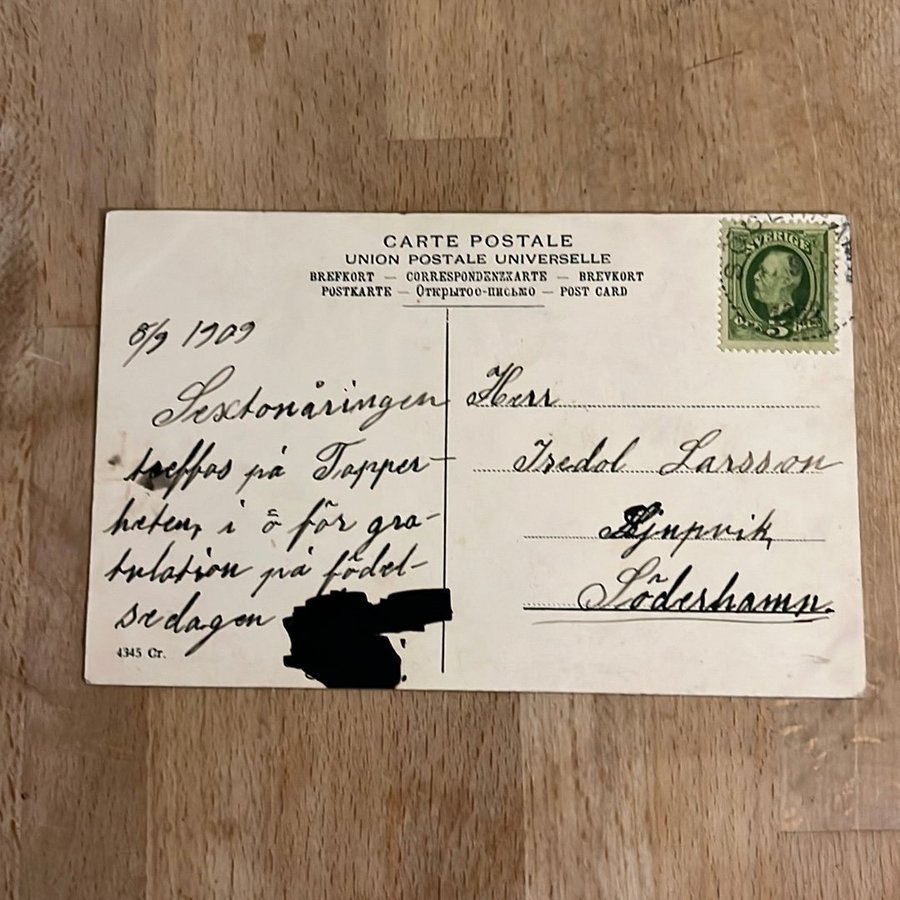 CARTE POSTALE
UNION POSTALE UNIVERSELLE
BREFKORT — CORRESPONDENZKARTE — BREVKORT
POSTKARTE — Открытое-письмо — POST CARD
SVERIGE
5
8/9 1909
Sextonåringen
treffas på Tapper-
heten, i ö för gra-
tulation på födel-
sedagen
4345 Gr.
Herr
Larsson
Söderhamn.